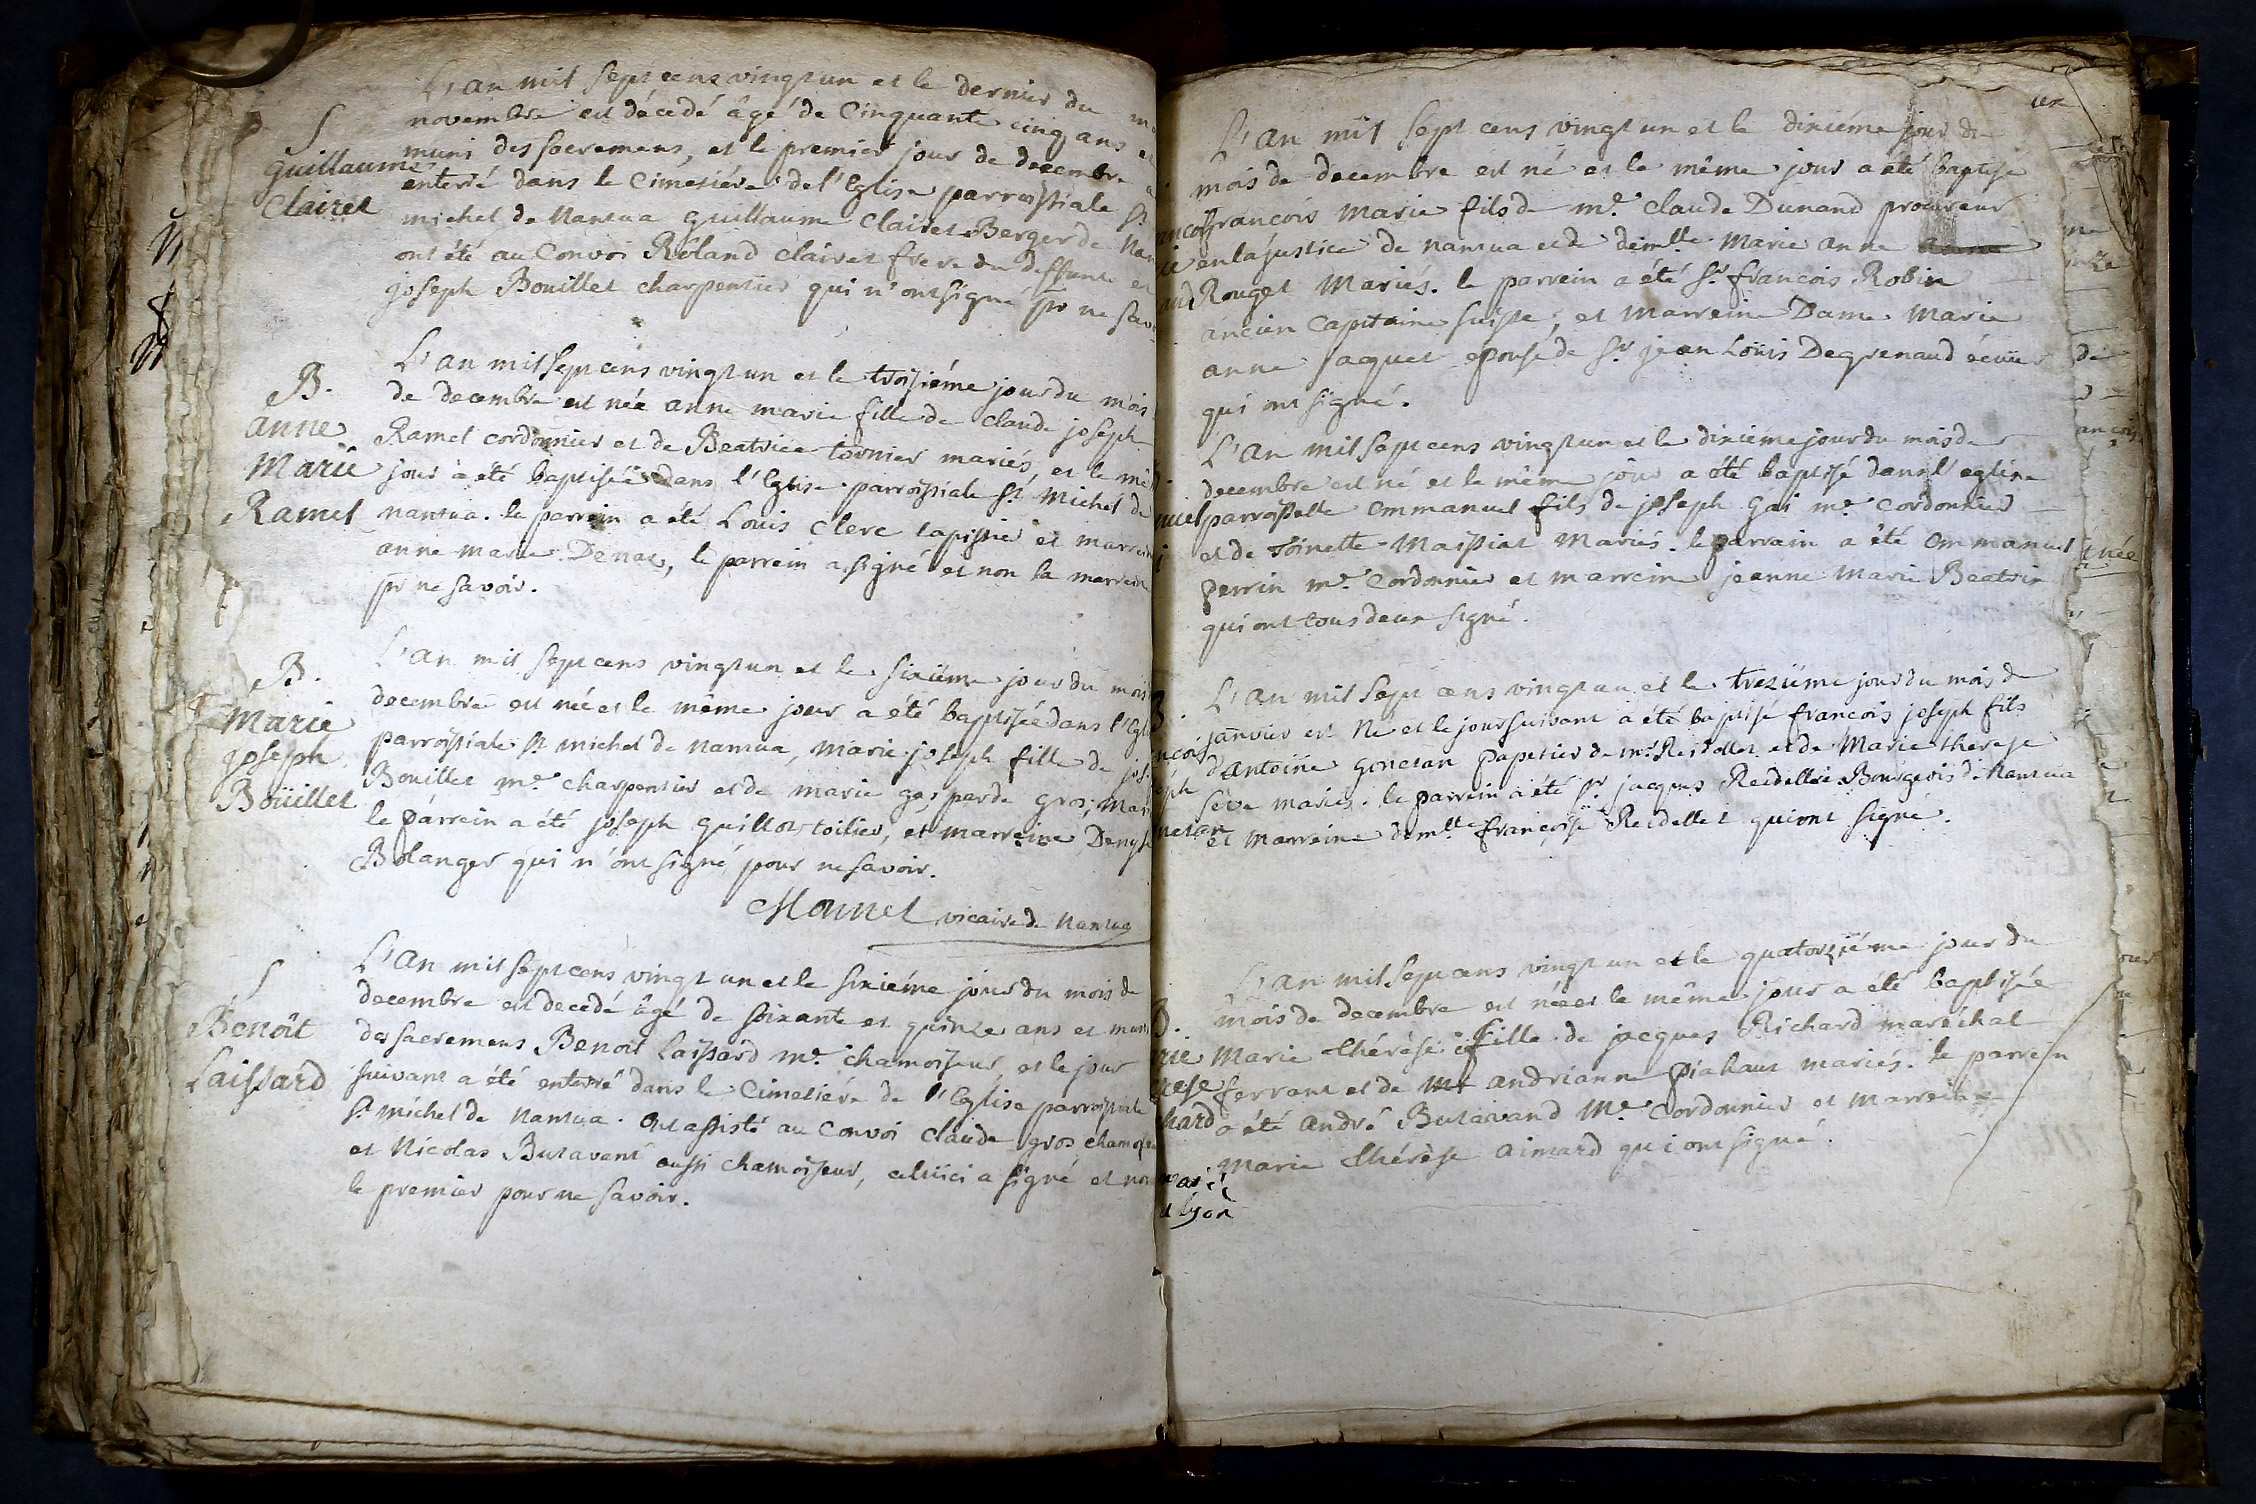 L'an mil sept cens vingt un et le dernier du
novembre est décedé âgé de Cinquante cinq ans et
muni des sacremens, et le premier jour de decembre a
enterré dans le Cimetiére de l'Eglise parroissiale St
michel de Nantua Guillaume Clairet Berger de Nan
ont été au Convoi Roland Clairet frere du deffunt et
joseph Bouillet charpentier qui n'ont signé pr ne sav
S
Guillaume
Clairet
L'an mil sept cens vingt un et le troisiéme jour du mois
de decembre est née anne marie fille de claude joseph
Ramel cordonnier et de Beatrice tornier mariés, et le mê
jour a été baptisée dans l'Eglise parroissiale St Michel de
nantua. le parrein a été Louis Clerc tapissier et marrein
anne marie Denat, le parrein a signé et non la marreine
pr ne savoir.
B.
Anne
Marie
Ramel
L'an mil sept cens vingt un et le sixiéme jour du mois
decembre est née et le même jour a été baptisée dans l'Egl
parroissiale St michel de nantua, Marie joseph fille de jos
Bouillet me charpentier et de marie gasparde gros, mar
le parrein a été joseph guillot toilier, et marreine Denyse
Bolanger qui n'ont signé pour ne savoir.
B.
Marie
joseph
Boüillet
Monnet vicaire de Nantua
L'An mil sept cens vingt un et le sixiéme jour du mois de
decembre est decedé âgé de soixante et quinze ans et muni
des sacremens Benoit Laissard me chamoiseur, et le jour
suivant a été enterré dans le Cimetiére de l'Eglise parroissiale
St michel de nantua. Ont assisté au Convoi claude gros chamois
et Nicolas Butavant aussi chamoiseur, celuici a signé et non
le premier pour ne savoir.
S
Benoît
Laissard
L'An mil sept cens vingt un et le dixiéme jour du
mois de decembre est né et le même jour a été baptisé
francois Marie fils de me. claude Dunand procureur
en la justice de nantua et de demlle. Marie anne
Rouget Mariés. le parrein a été Sr. francois Robin
ancien Capitaine suisse, et Marreine Dame Marie
anne jaquet epouse de Sr jean Loüis Degrenaud écuier
qui ont signé.
L'An mil sept cens vingt un et le dixiéme jour du mois de
decembre est né et le même jour a été baptisé dans l'eglise
parroissalle emmanuel fils de joseph gai me. Cordonnier
et de Toinette Maissiat Mariés. le parrain a été emmanuel
perrin me. Cordonnier et marreine jeanne Marie Beatrix
qui ont tous deux signé.
L'An mil sept cens vingt un et le trezieme jour du mois de
janvier est Né et le jour suivant a été baptisé francois joseph fils
d'Antoine gonetan papetier de mr Reidellet et de Marie therese
seve mariés. le parrein a été Sr jacques Reidellet Bourgeois de Nantua
et Marreine demlle françoise Reidellet qui ont signé.
L'An mil sept cens vingt un et le quatorziéme jour du
mois de decembre est née et le même jour a été baptisée
Marie thérèse fille de jacques Richard maréchal
ferrant et de andrianne piahaut mariés. le parrein
a été andré Butavand Me. Cordonnier et marreine
Marie thérèse aimard qui ont signé.
lyon